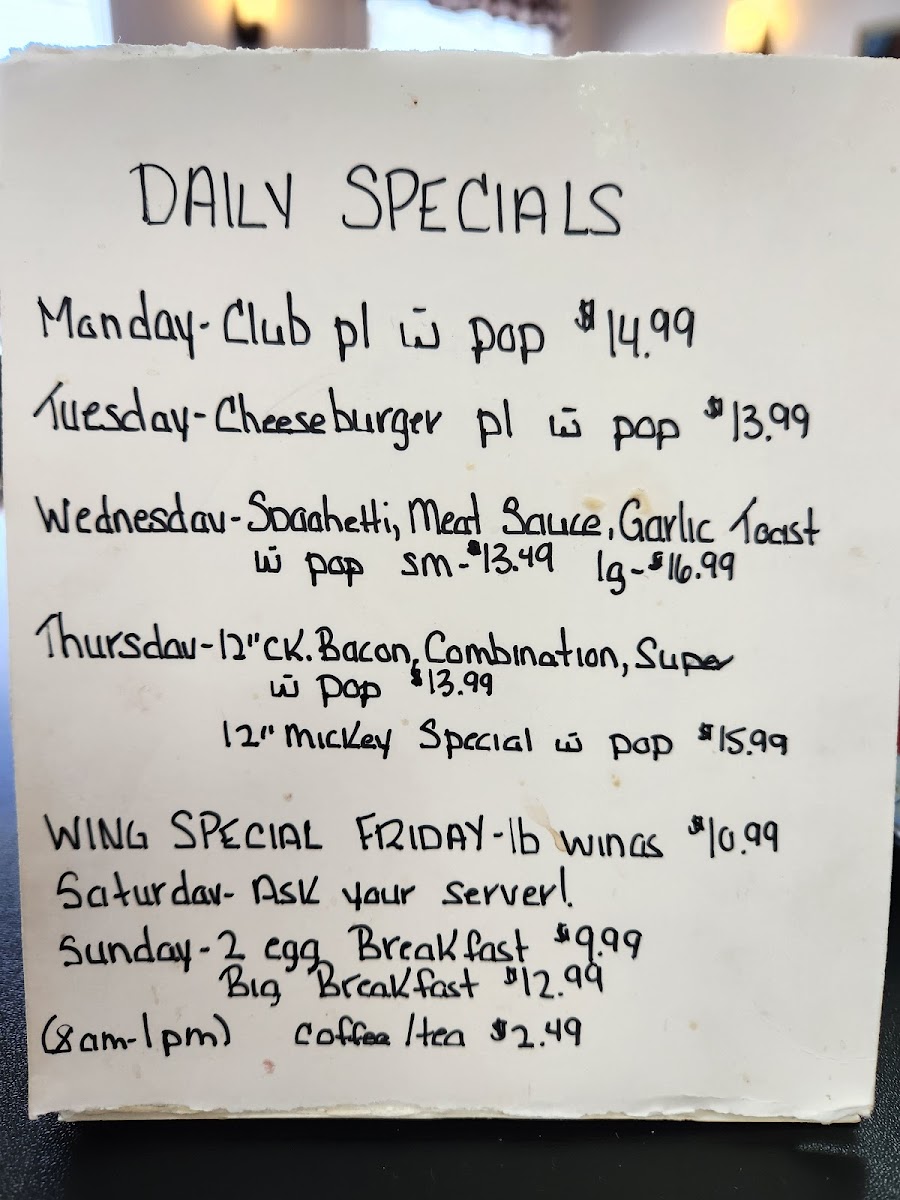 DAILY SPECIALS
Monday-Club pl w̅ pop $14.99
Tuesday-Cheeseburger pl w̅ pop $13.99
Wednesday-Spaghetti, Meat Sauce, Garlic Toast
w̅ pop sm-$13.49 lg-$16.99
Thursday-12" CK. Bacon, Combination, Super
w̅ pop $13.99
12" Mickey Special w̅ pop $15.99
WING SPECIAL FRIDAY-lb wings $10.99
Saturday- Ask your server!
Sunday-2 egg Breakfast $9.99
Big Breakfast $12.99
(8am-1pm) coffee/tea $2.49